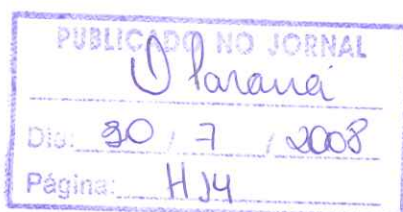 PUBLICADO NO JORNAL
O Paraná
Dia: 30 / 7 / 2008
Página: H14